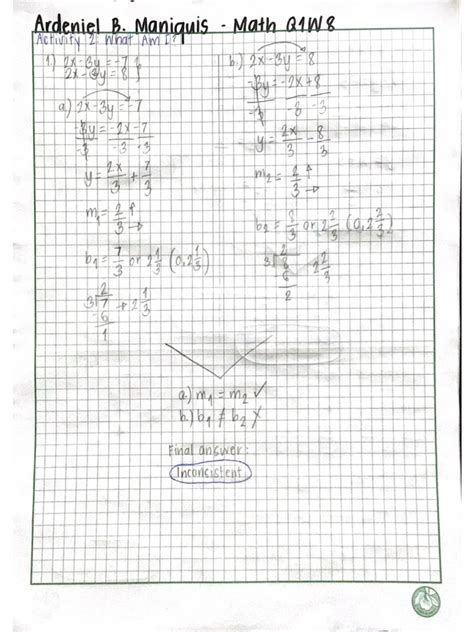 Ardeniel B. Maniquis - Math Q1W8
Activity 2: What Am I?
1.) 2x-3y=-7
2x-3y=8
a.) 2x-3y=-7
-3y = -2x-7
-3 -3 -3
y = 2x/3 + 7/3
m₁ = 2/3 ↑→
b₁ = 7/3 or 2 1/3 (0, 2 1/3)
2
3⟌7 → 2 1/3
-6
1
b.) 2x-3y=8
-3y = -2x+8
-3 -3 -3
y = 2x/3 - 8/3
m₂ = 2/3 ↑→
b₂ = 8/3 or 2 2/3 (0, 2 2/3)
2
3⟌8 → 2 2/3
6
2
a.) m₁ = m₂ ✓
b.) b₁ ≠ b₂ X
Final answer:
Inconcistent